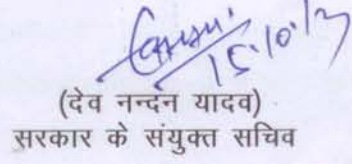 15.10.13
(देव नन्दन यादव)
सरकार के संयुक्त सचिव